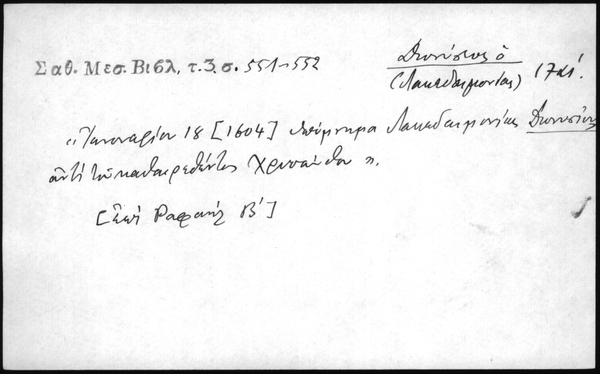 Σαθ. Μεσ. Βιβλ, τ. 3. σ. 551-552
Διονύσιος ὁ
(Λακεδαιμονίας) 17
«Ἰανουαρίου 18 [1604] ὑπόμνημα Λακεδαιμονίας Διονυσίου
ἀντὶ τοῦ καθαιρεθέντος Χρυσάνθου».
[ἐπὶ Ραφαὴλ Β΄]